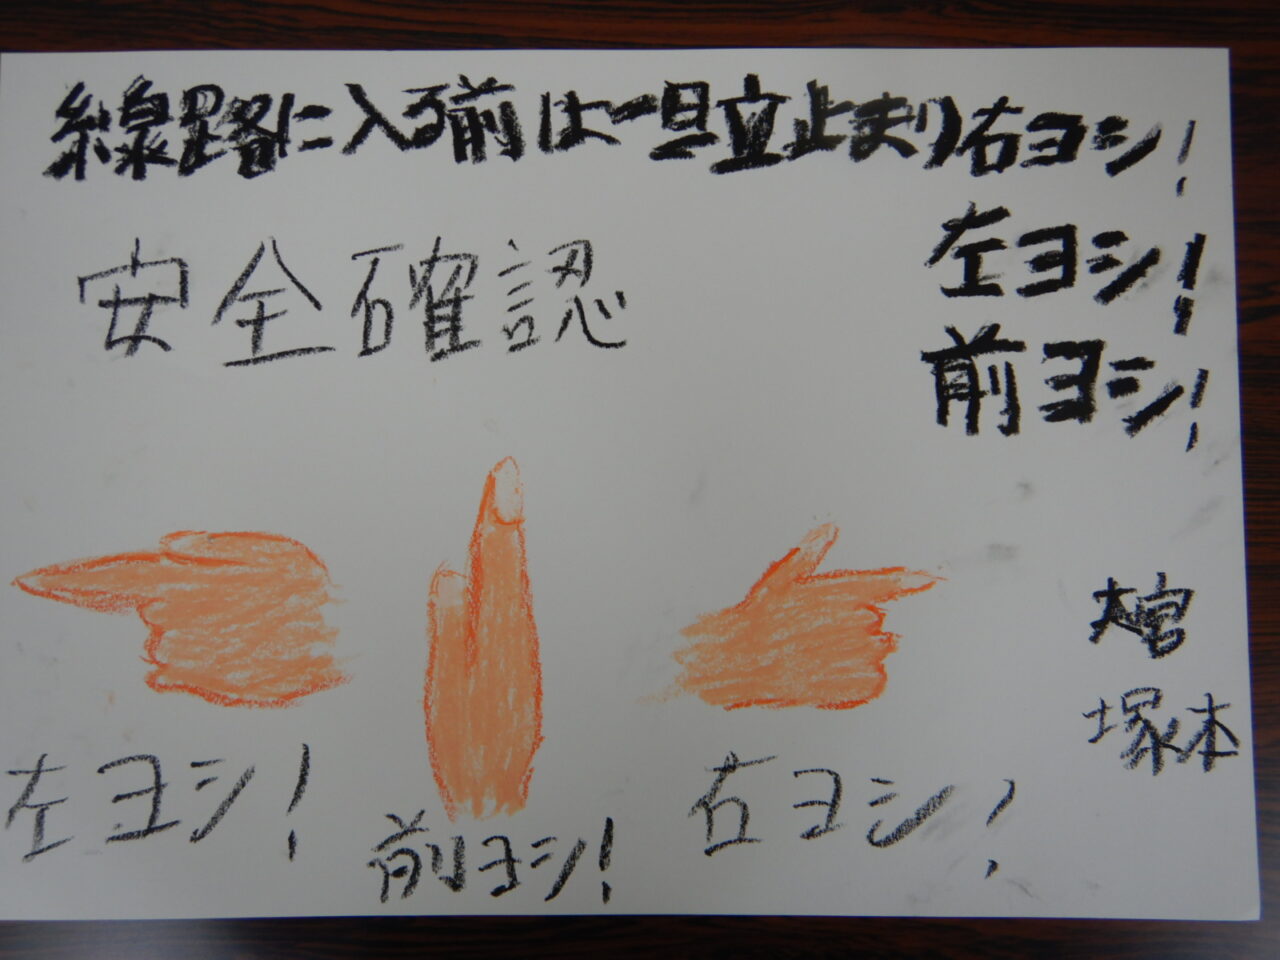 線路に入る前は一旦立止まり右ヨシ！
左ヨシ！
前ヨシ！
安全確認
左ヨシ！
前ヨシ！
右ヨシ！
大宮
塚本